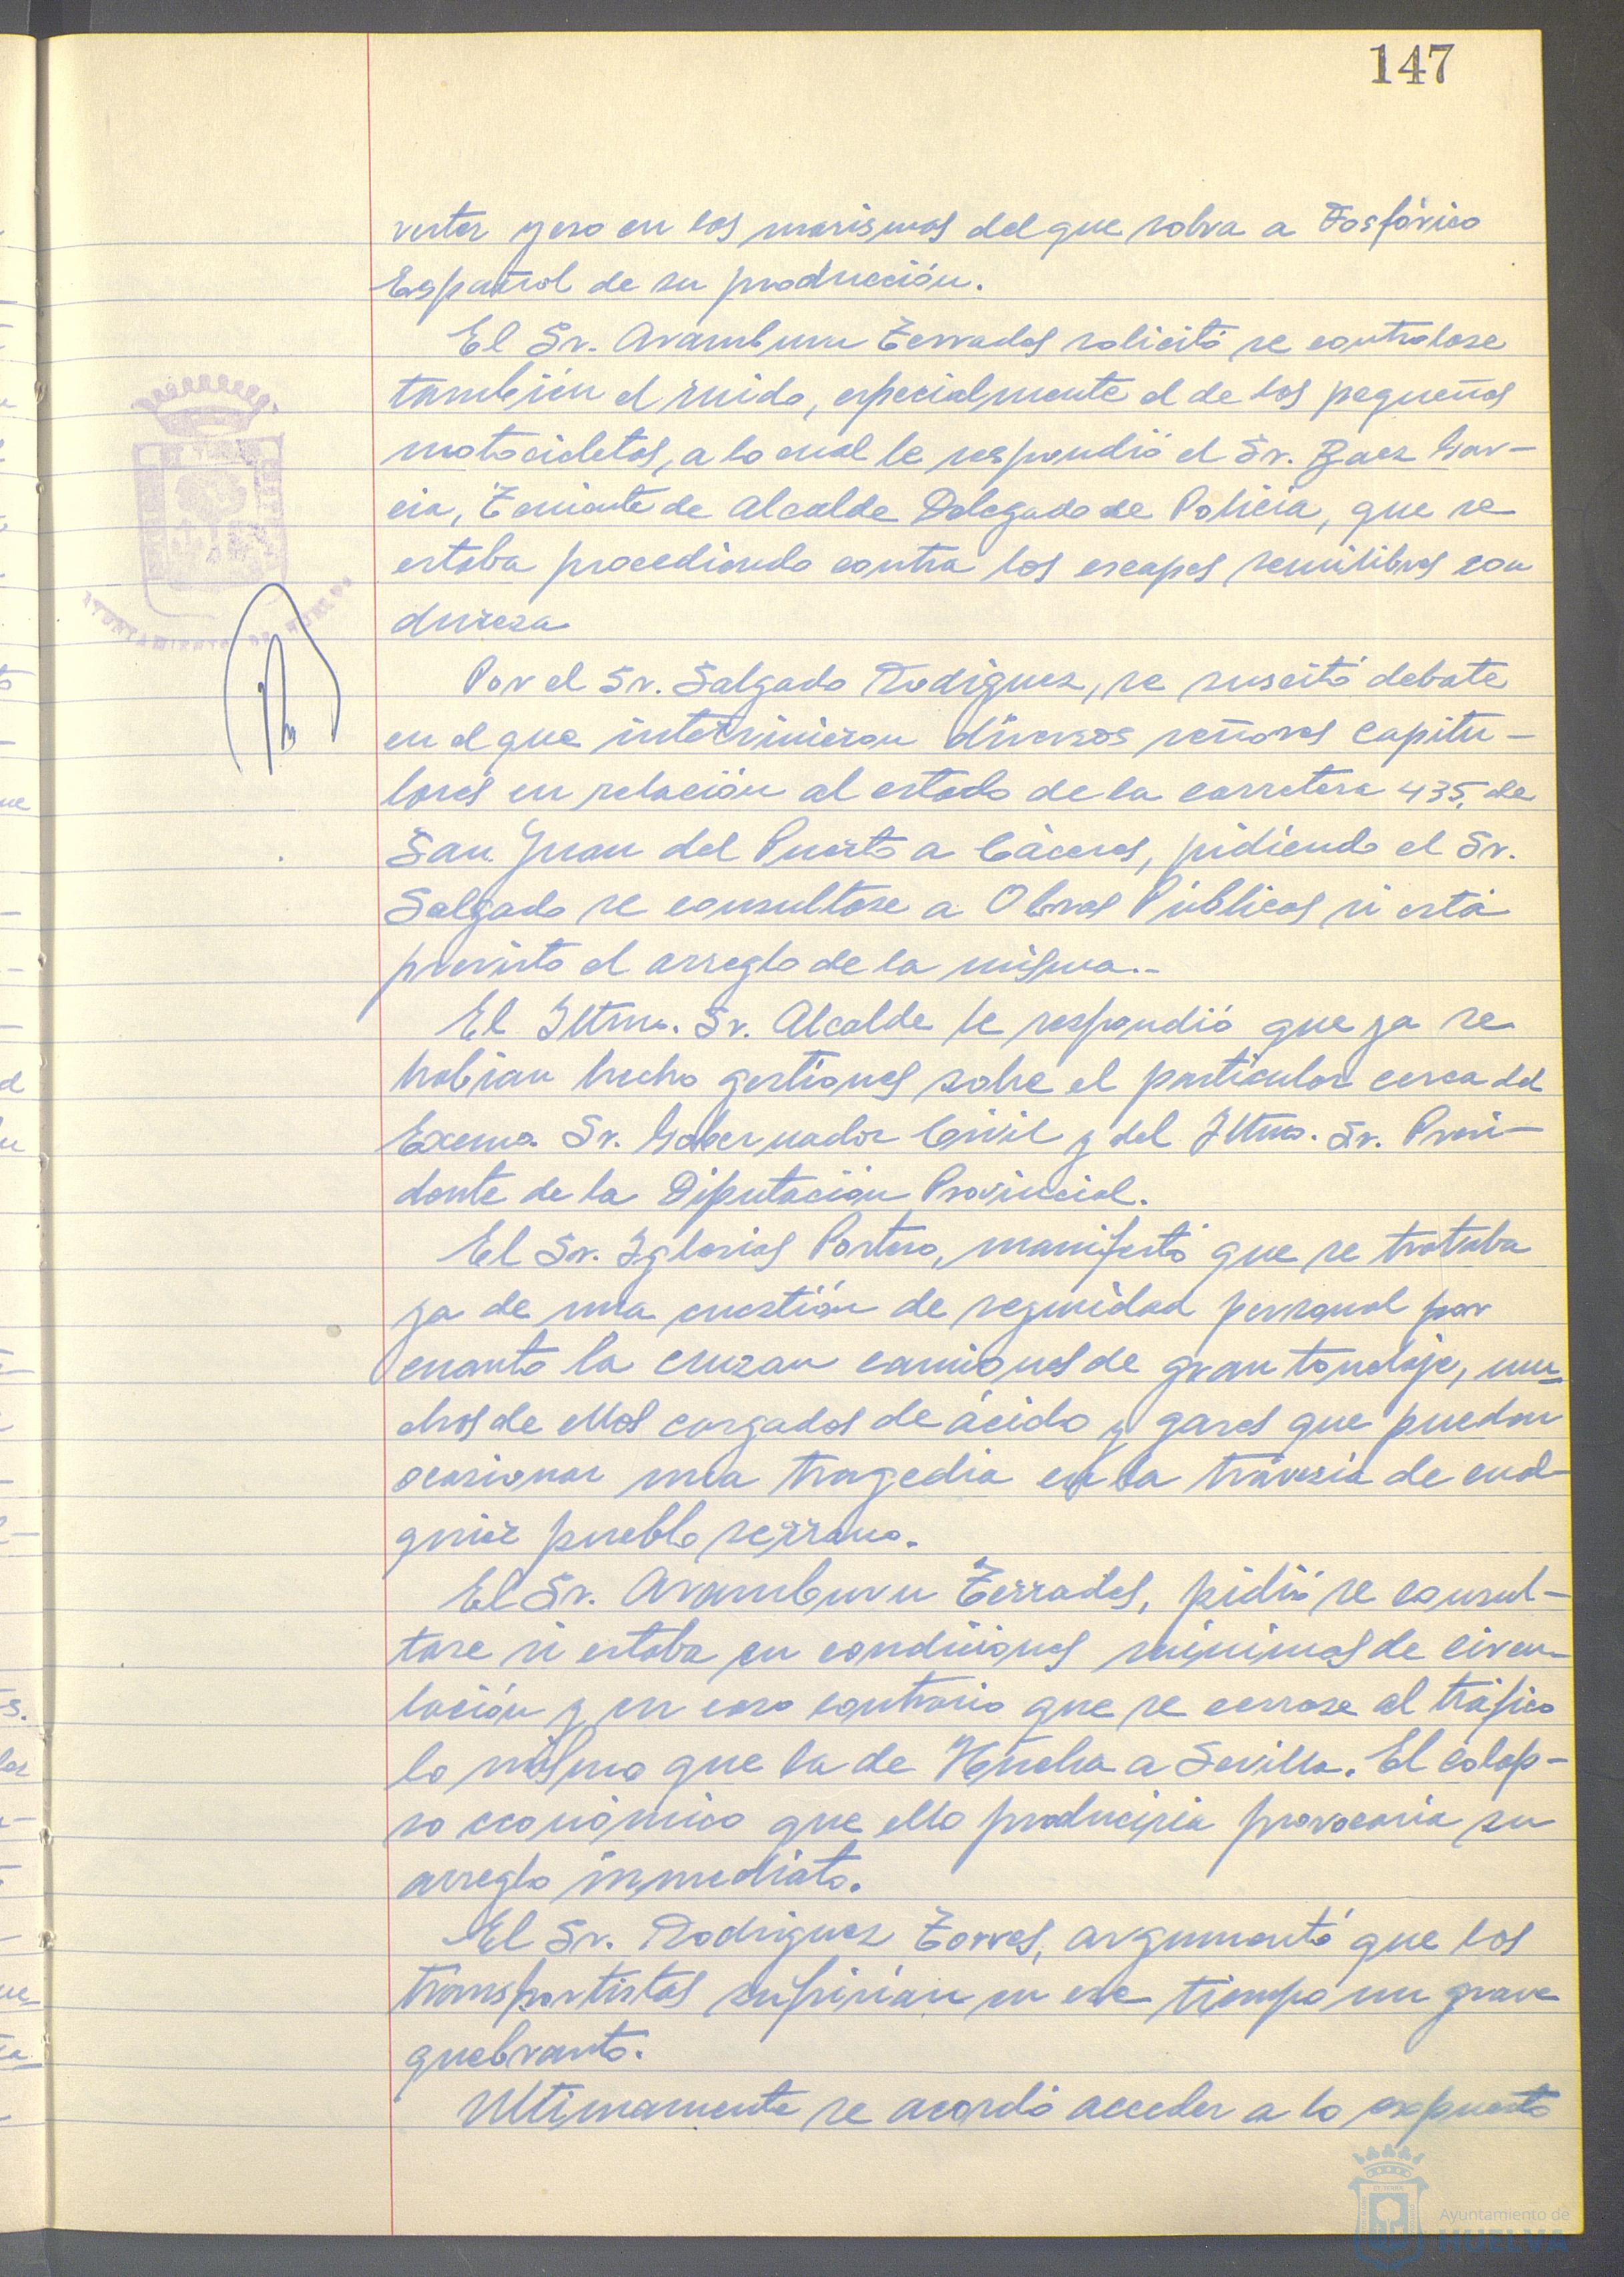 147
verter yeso en las marismas del que sobra a Fosfórico
Español de su producción.
El Sr. Aramburu Terrades solicitó se controlase
también el ruido, especialmente el de las pequeñas
motocicletas, a lo cual le respondió el Sr. Baez Gar-
cia, Teniente de Alcalde Delegado de Policia, que se
estaba procediendo contra los escapes semilibres con
dureza
Por el Sr. Salgado Rodriguez, se suscitó debate
en el que intervinieron diversos señores Capitu-
lares en relación al estado de la carretera 435, de
San Juan del Puerto a Cáceres, pidiendo el Sr.
Salgado se consultase a Obras Públicas si está
previsto el arreglo de la misma.-
El Iltmo. Sr. Alcalde le respondió que ya se
habian hecho gestiones sobre el particular cerca del
Excmo. Sr. Gobernador Civil y del Iltmo. Sr. Presi-
dente de la Diputación Provincial.
El Sr. Iglesias Portero, manifestó que se trataba
ya de una cuestión de seguridad personal por
cuanto la cruzan camiones de gran tonelaje, mu-
chos de ellos cargados de ácido y gases que pueden
ocasionar una tragedia en la travesia de cual-
quier pueblo serrano.
El Sr. Aramburu Terrades, pidió se consul-
tase si estaba en condiciones minimas de circu-
lación y en caso contrario que se cerrase al tráfico
lo mismo que la de Huelva a Sevilla. El colap-
so económico que ello produciria provocaria su
arreglo inmediato.
El Sr. Rodriguez Torres, argumentó que los
transportistas sufririan en ese tiempo un grave
quebranto.
Ultimamente se acordó acceder a lo expuesto
AYUNTAMIENTO DE HUELVA
Ayuntamiento de
HUELVA